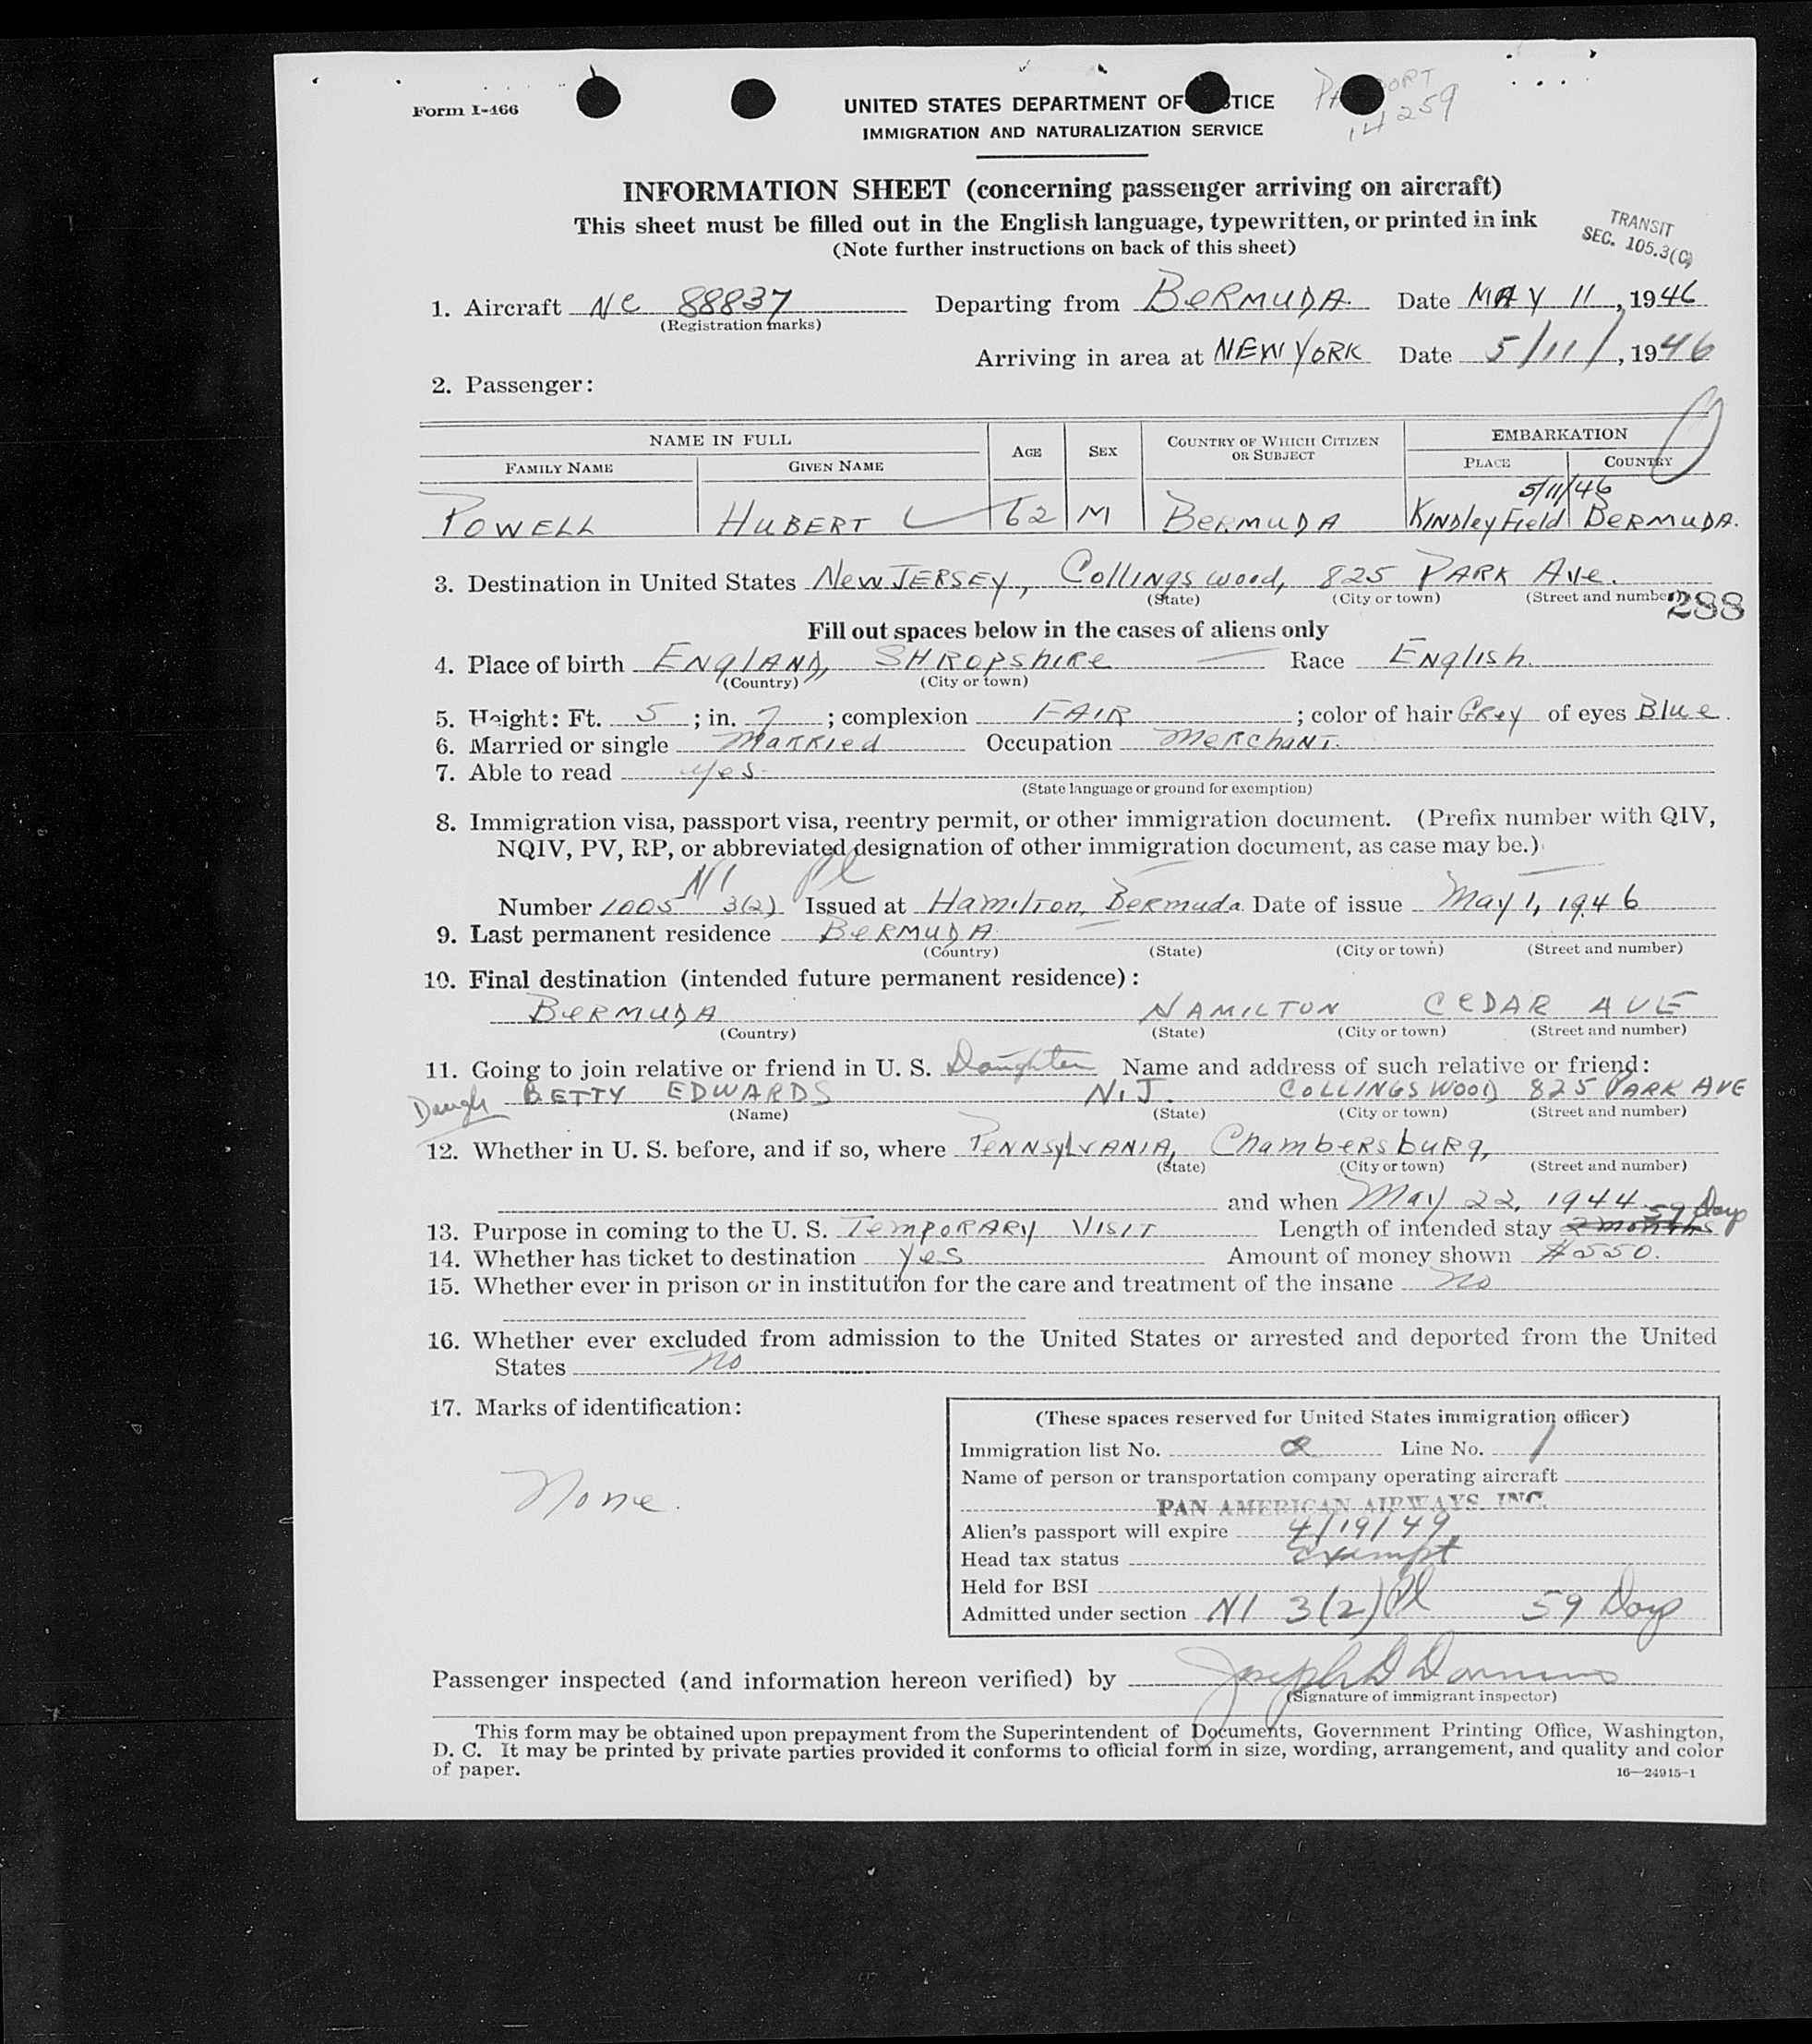 Form I-466
UNITED STATES DEPARTMENT OF JUSTICE
PASSPORT
14259
IMMIGRATION AND NATURALIZATION SERVICE
INFORMATION SHEET (concerning passenger arriving on aircraft)
This sheet must be filled out in the English language, typewritten, or printed in ink
(Note further instructions on back of this sheet)
TRANSIT
SEC. 105.3(C)
1. Aircraft NC 88837 Departing from BERMUDA. Date MAY 11, 1946
(Registration marks)
Arriving in area at NEW YORK Date 5/11/, 1946
2. Passenger:
NAME IN FULL AGE SEX COUNTRY OF WHICH CITIZEN OR SUBJECT EMBARKATION
FAMILY NAME GIVEN NAME PLACE COUNTRY
5/11/46
POWELL HUBERT 62 M BERMUDA Kindley Field BERMUDA.
3. Destination in United States NEW JERSEY, Collingswood, 825 PARK Ave.
(State) (City or town) (Street and number)
288
Fill out spaces below in the cases of aliens only
4. Place of birth ENGLAND, SHROPSHIRE Race ENGLISH.
(Country) (City or town)
5. Height: Ft. 5; in. 7; complexion FAIR; color of hair Grey of eyes Blue.
6. Married or single Married Occupation Merchant.
7. Able to read yes
(State language or ground for exemption)
8. Immigration visa, passport visa, reentry permit, or other immigration document. (Prefix number with QIV,
NQIV, PV, RP, or abbreviated designation of other immigration document, as case may be.)
NI Pl
Number 1005 3(2) Issued at Hamilton, Bermuda Date of issue May 1, 1946
9. Last permanent residence BERMUDA
(Country) (State) (City or town) (Street and number)
10. Final destination (intended future permanent residence):
BERMUDA HAMILTON CEDAR AVE
(Country) (State) (City or town) (Street and number)
11. Going to join relative or friend in U. S. Daughter Name and address of such relative or friend:
Daugh BETTY EDWARDS N.J. COLLINGSWOOD 825 PARK AVE
(Name) (State) (City or town) (Street and number)
12. Whether in U. S. before, and if so, where PENNSYLVANIA, Chambersburg,
(State) (City or town) (Street and number)
and when May 22, 1944
59 Days
13. Purpose in coming to the U. S. TEMPORARY VISIT Length of intended stay 2 months
14. Whether has ticket to destination yes Amount of money shown $550.
15. Whether ever in prison or in institution for the care and treatment of the insane no
16. Whether ever excluded from admission to the United States or arrested and deported from the United
States no
17. Marks of identification:
None.
(These spaces reserved for United States immigration officer)
Immigration list No. 2 Line No. 1
Name of person or transportation company operating aircraft
PAN AMERICAN AIRWAYS, INC.
Alien's passport will expire 4/19/49
Head tax status Exempt
Held for BSI
Admitted under section NI 3(2) Pl 59 Days
Passenger inspected (and information hereon verified) by Joseph D
(Signature of immigrant inspector)
This form may be obtained upon prepayment from the Superintendent of Documents, Government Printing Office, Washington,
D. C. It may be printed by private parties provided it conforms to official form in size, wording, arrangement, and quality and color
of paper.
16—24915-1